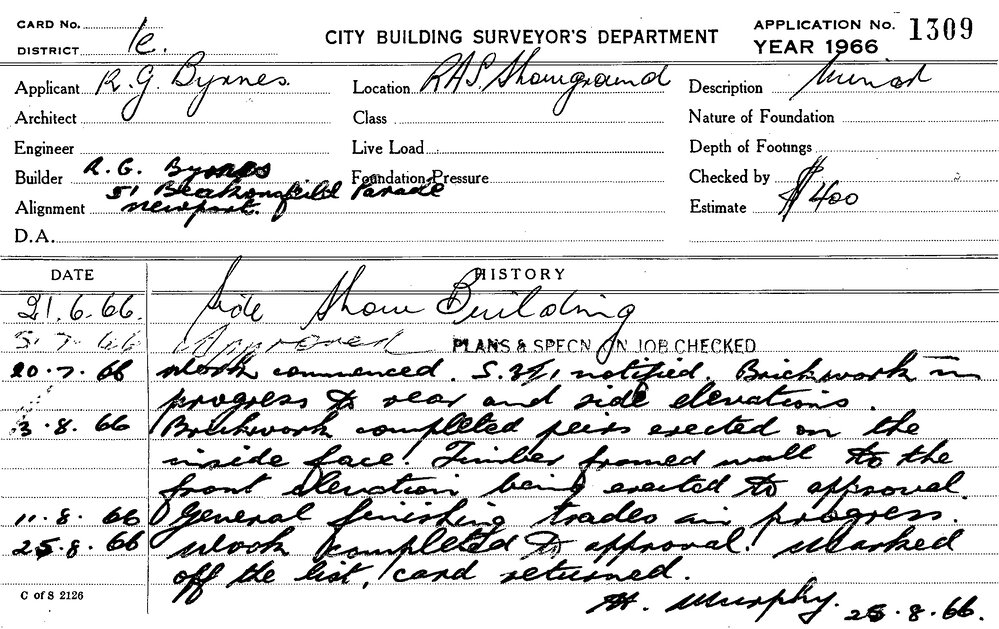 CARD No.
DISTRICT 1e.
CITY BUILDING SURVEYOR'S DEPARTMENT
APPLICATION No. 1309
YEAR 1966
Applicant R. G. Byrnes.
Location RAS. Showground
Description Minor
Architect
Class
Nature of Foundation
Engineer
Live Load
Depth of Footings
Builder R. G. Byrnes
Foundation Pressure
Checked by
51 Beakonsfield Parade
Alignment Newport.
Estimate $400
D.A.
DATE HISTORY
21.6.66. Side Show Building
5.7.66 Approved PLANS & SPECN ON JOB CHECKED
20.7.66 Work commenced. notified. Brickwork in
progress to rear and side elevations.
3.8.66 Brickwork completed peirs erected on the
inside face. Timber framed wall to the
front elevation being erected to approval.
11.8.66 General finishing trades in progress.
25.8.66 Work completed to approval. Marked
off the list, card returned.
C of S 2126
H. Murphy. 25.8.66.